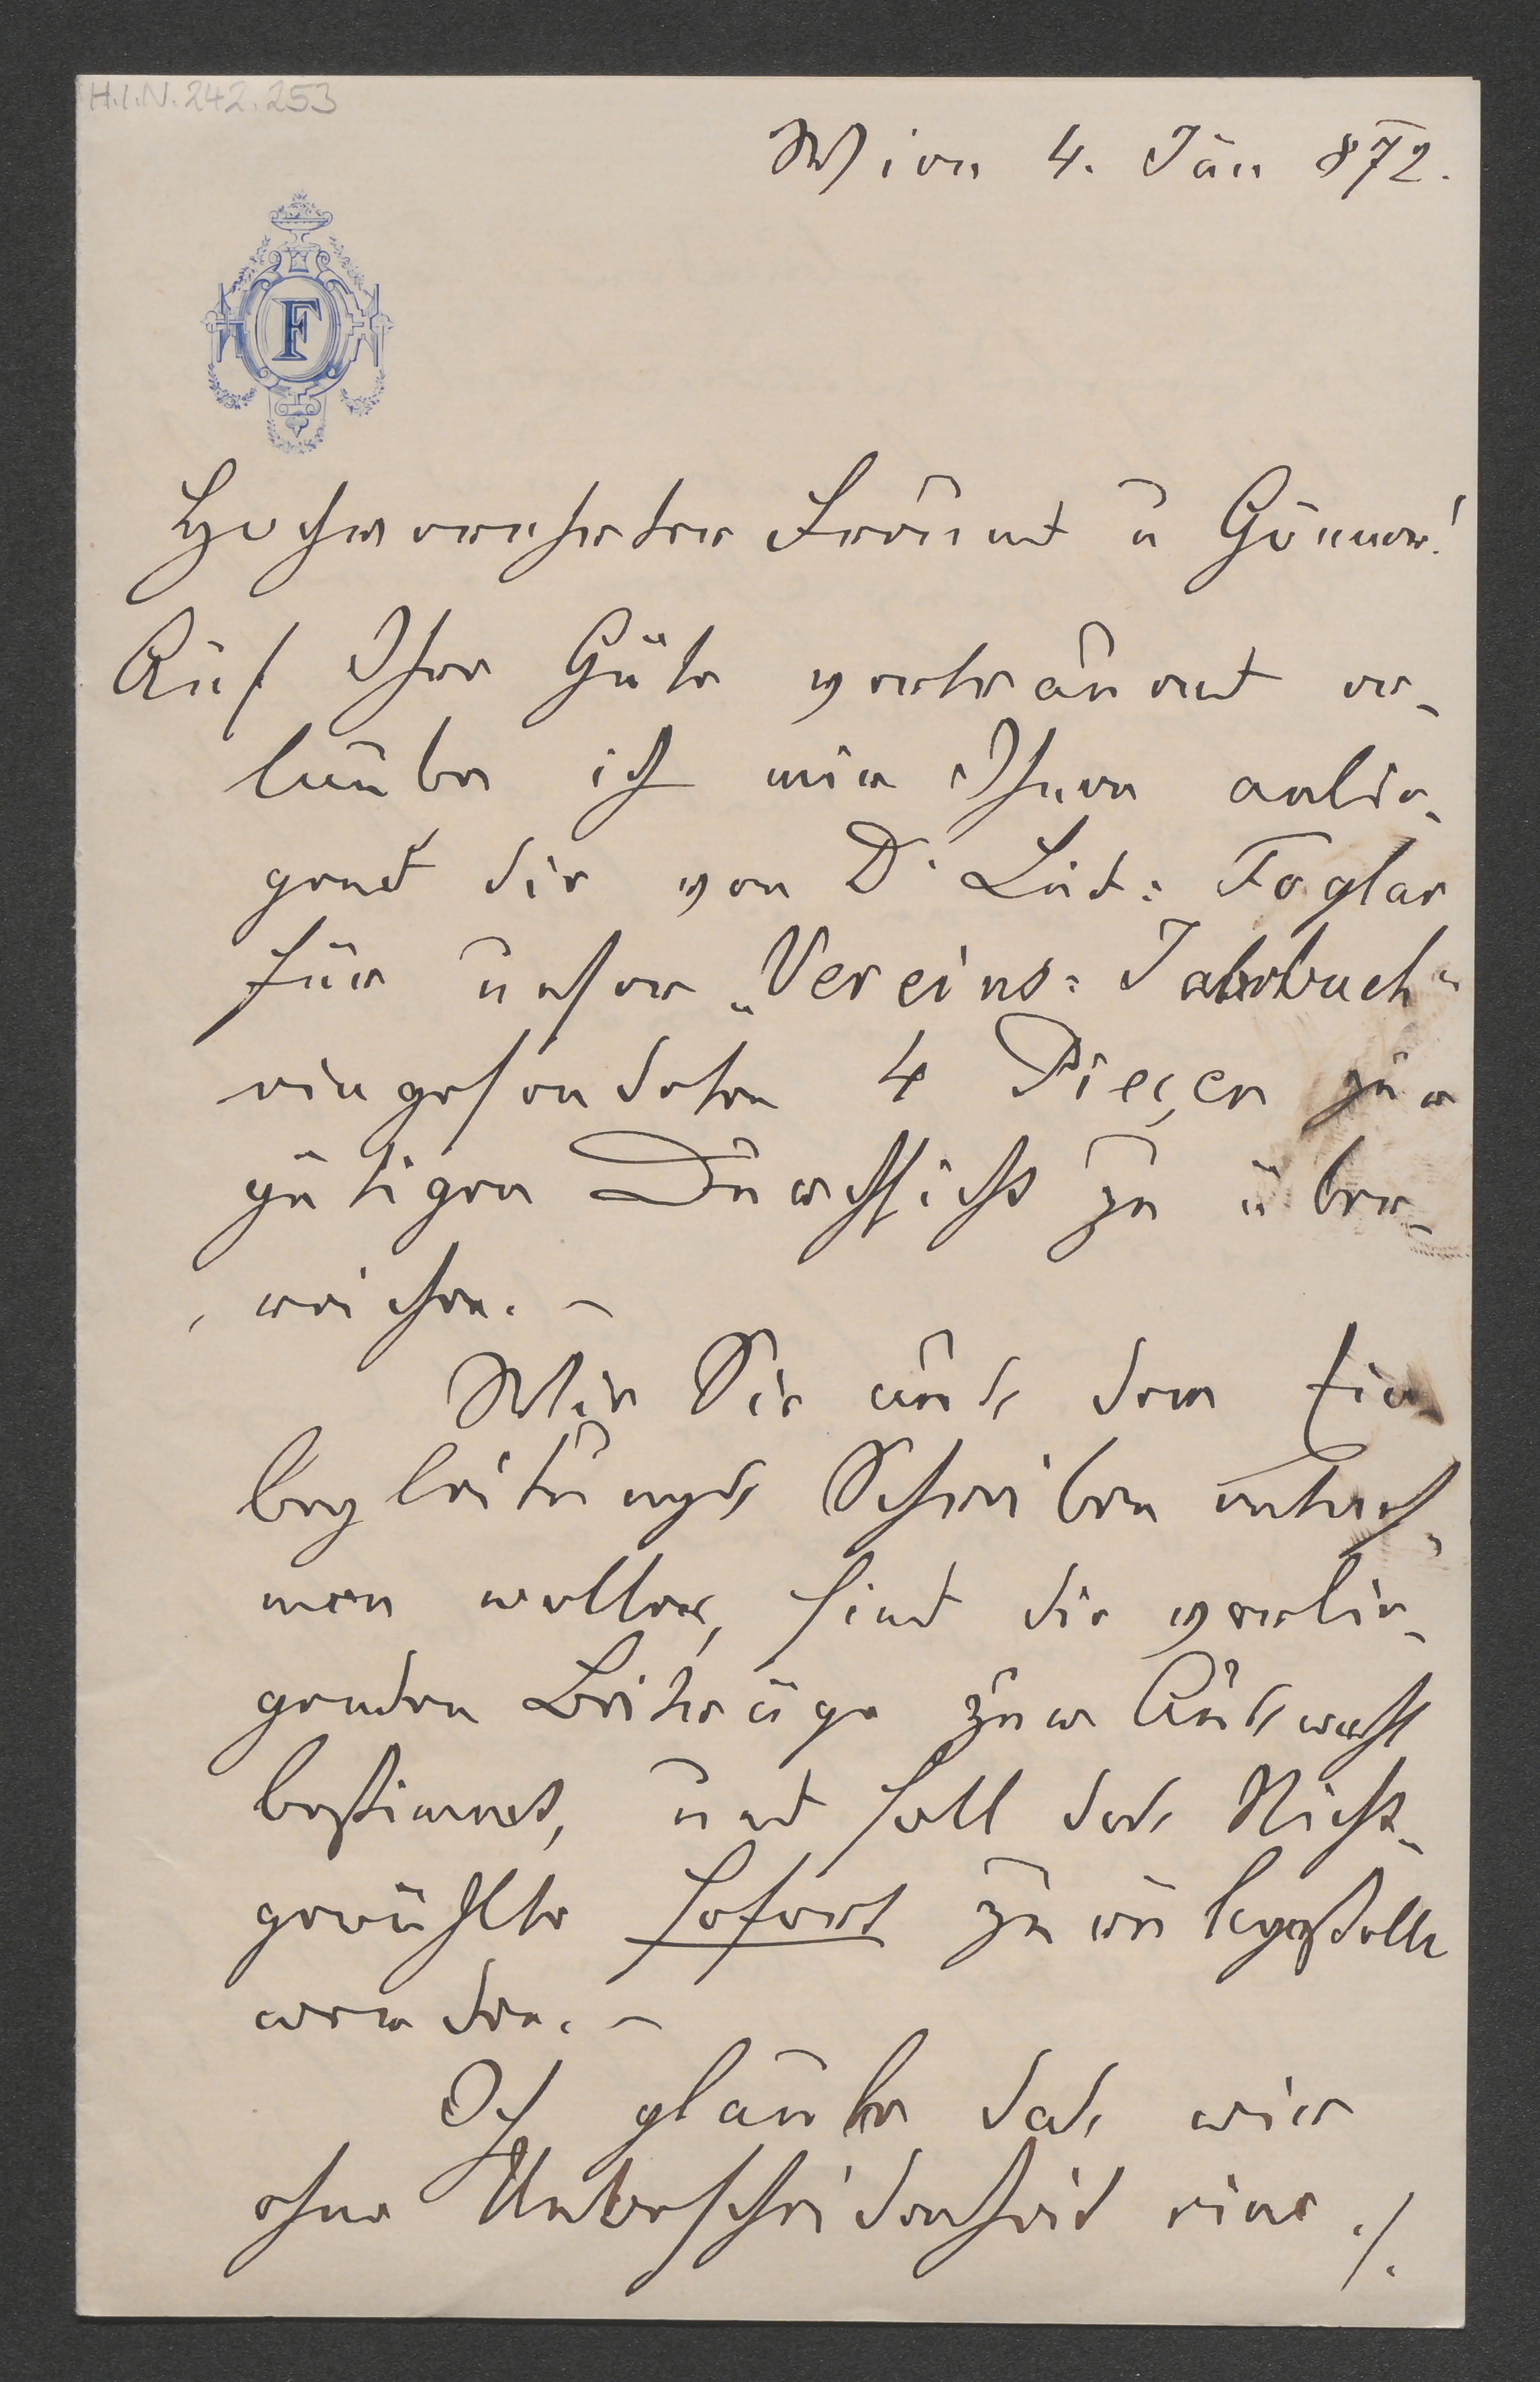 H.I.N. 242.253
Wien 4. Jän 872.
F
Hochverehrter Freund u Gönner!
Auf Ihre Güte vertrauend er-
laube ich mir Ihnen anlie-
gend die von D. Lud: Foglar
für unser „Vereins: Jahrbuch"
eingesendeten 4 Pieçen zur
gütigen Durchsicht zu über-
reichen. –
Wie Sie aus dem Ein
begleitungs Schreiben entneh-
men wollen, sind die vorlie-
genden Beiträge zur Auswahl
bestimmt, und soll das Nicht-
gewählte sofort zurückgestellt
werden. –
Ich glaube das wir
ohne Unbescheidenheit eine ./.